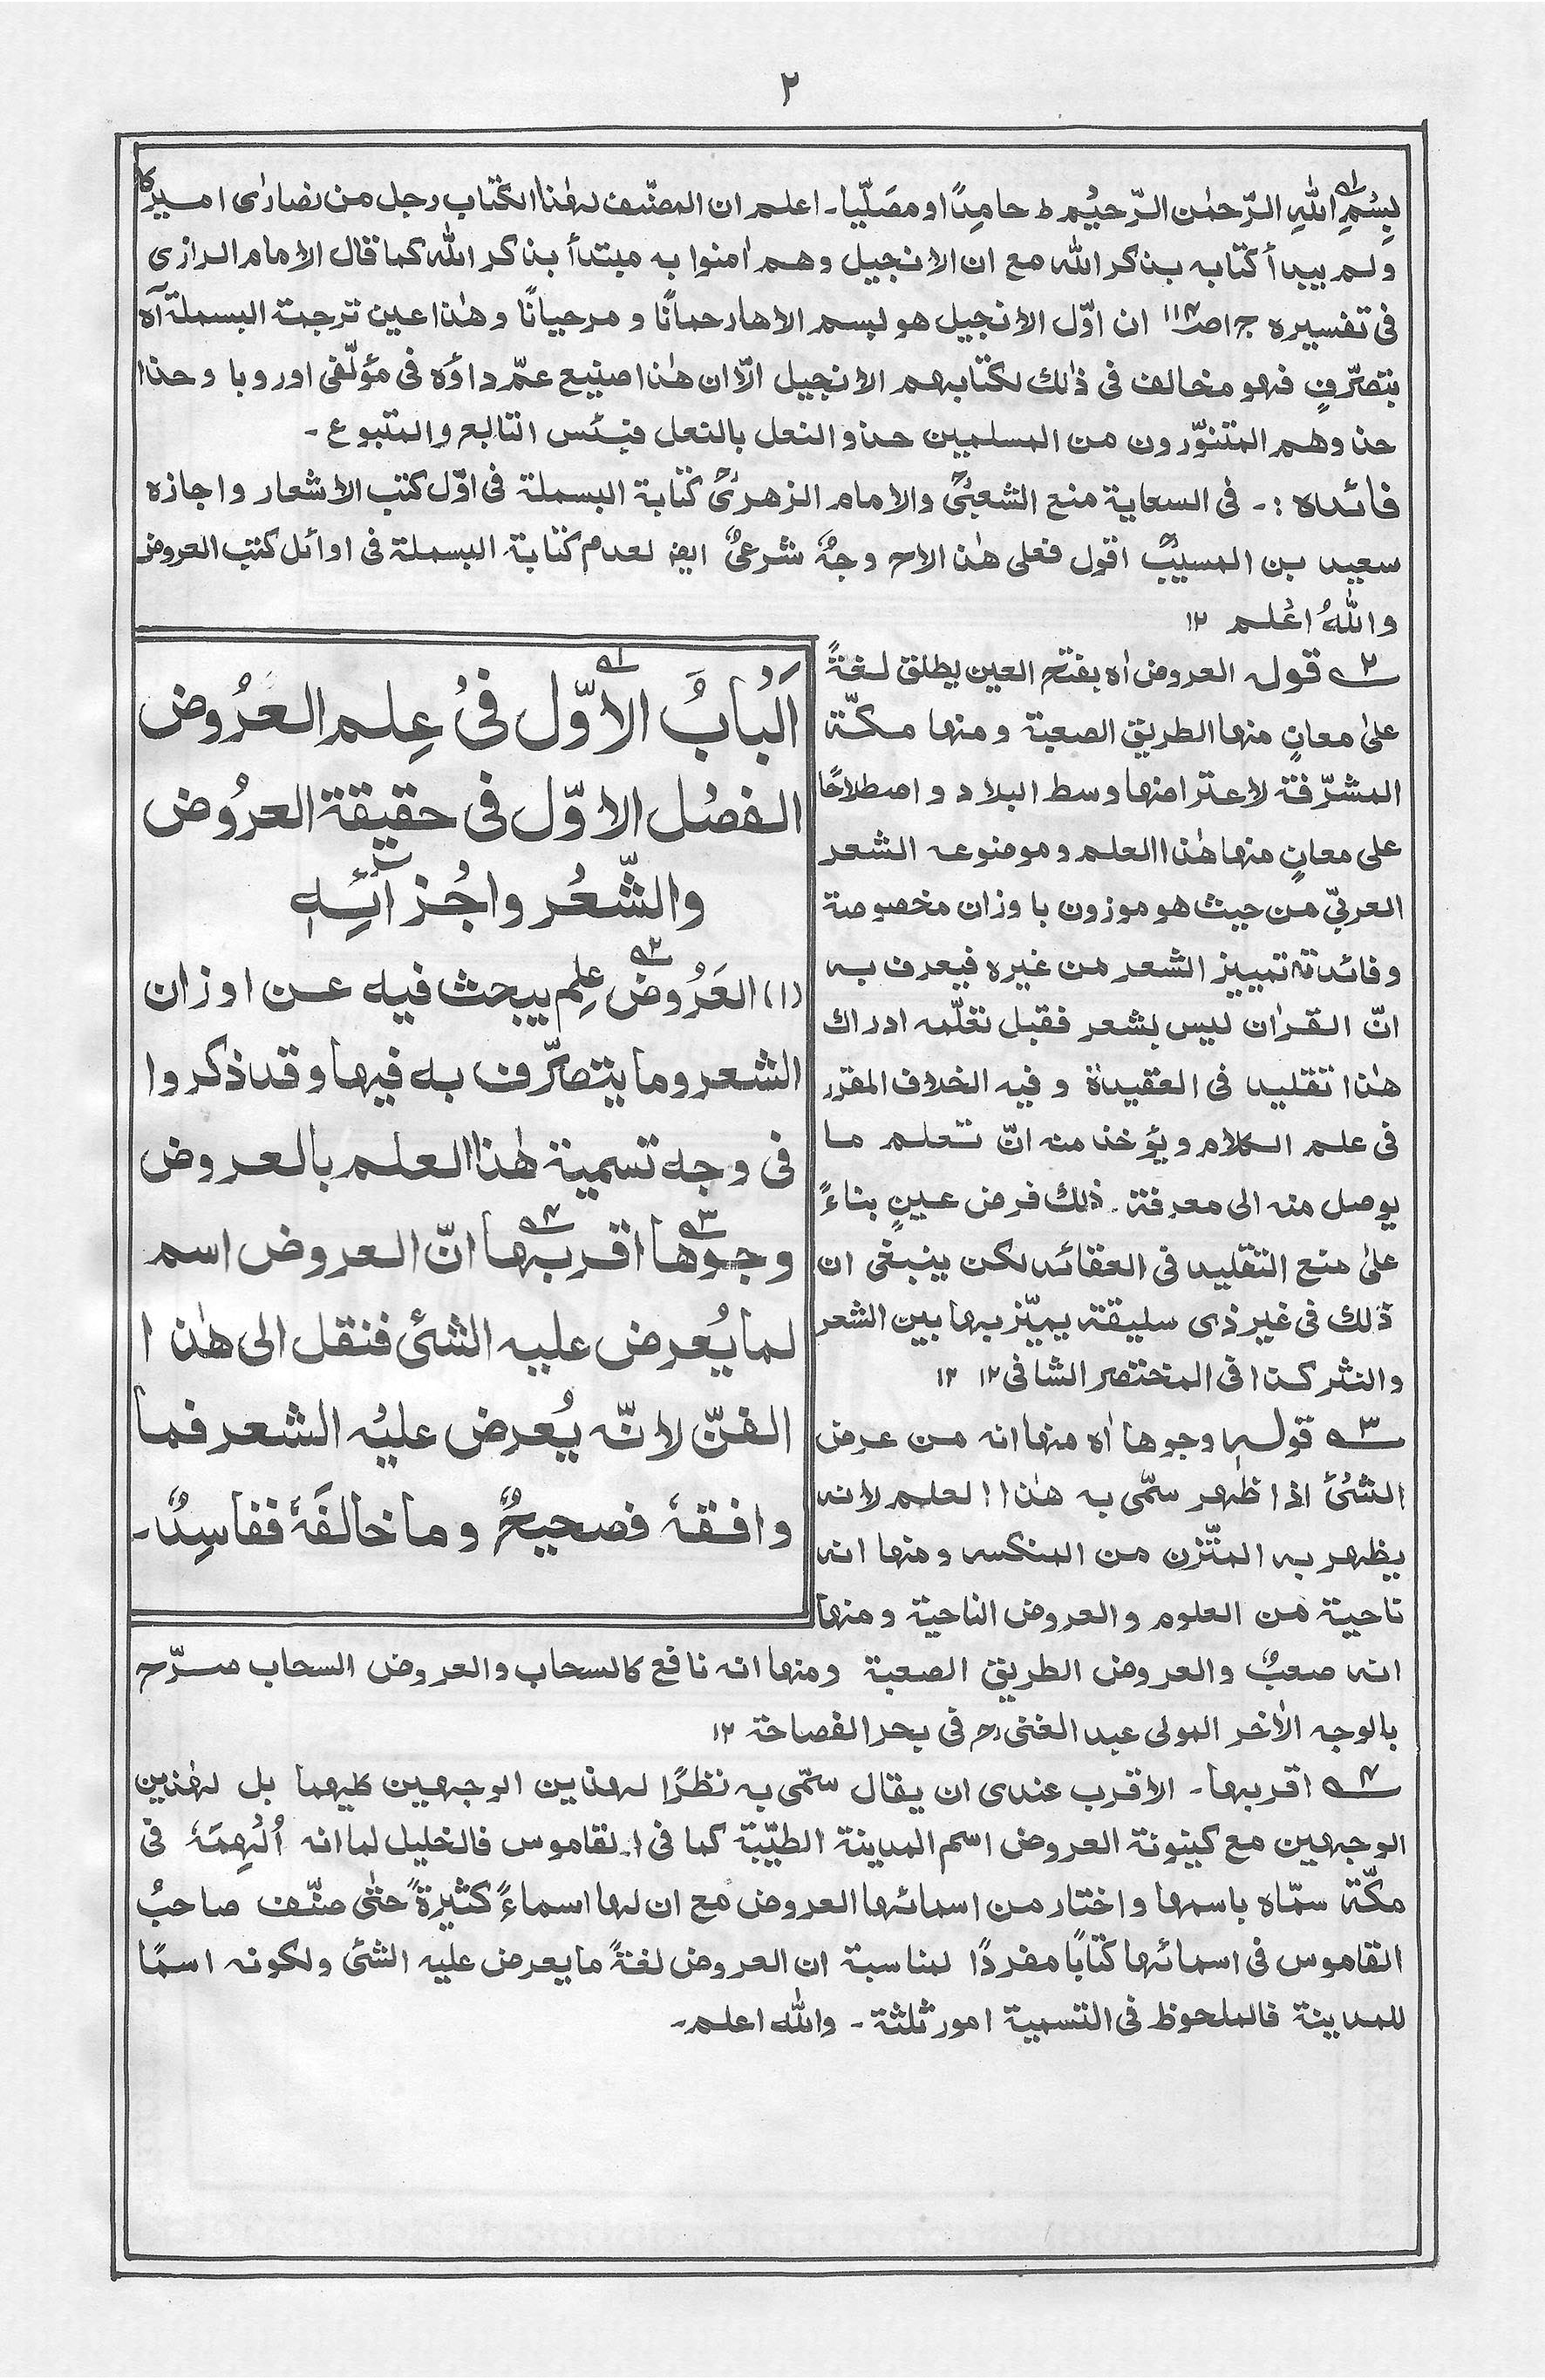 ٢
بِسْمِ اللهِ الرّحمٰن الرّحیْم ط حامِدًا او مصَلّیا۔ اعلم ان المصنّف لهٰذا الکتاب رجل من نصارٰی امیرکا
ولم یبدأ کتابه بذکر الله مع ان الانجیل وهم اٰمنوا به مبتدأ بذکر الله کما قال الامام الرازی
فی تفسیره ج ۱ ص ان اوّل الانجیل هو لبسم الاهارحمانًا و مرحیانًا وهٰذا عین ترجمة البسملة آه
بتصرّفٍ فهو مخالف فی ذٰلك لکتابهم الانجیل الّا ان هٰذا صنیع عمّ داؤه فی مؤلّفی اوروبا وحذا
حذوهم المتنوّرون من المسلمین حذو النعل بالنعل فبئس التابع والمتبوع ۔
فائده :۔ فی السعایة منع الشعبیؒ والامام الزهریؒ کتابة البسملة فی اوّل کتب الاشعار واجازه
سعید بن المسیبؒ اقول فعلی هٰذا وجهٌ شرعیٌ ایض لعدم کتابة البسملة فی اوائل کتب العروض
واللهُ اعْلم ۱۲
اَلْبابُ الاوّل فیْ عِلم العَرُوض
الفصْل الاوّل فی حقیقة العرُوض
والشّعْر واجْزآئِهٖ
(۱) العَرُوض علِم یبحث فیه عن اوزان
الشعر وما یتصرّف به فیها وقد ذکروا
فی وجه تسمیة هٰذا العلم بالعروض
وجوها اقربها انّ العروض اسم
لما یُعرض علیه الشئ فنقل الی هٰذا
الفنّ لانّه یُعرض علیْه الشعر فما
وافقهٗ فصحیحٌ وما خالفَهٗ ففاسِدٌ۔
۲ قوله العروض اه بفتح العین یطلق لغةً
علیٰ معانٍ منها الطریق الصعبة ومنها مکّة
المشرّفة لاعتراضها وسط البلاد واصطلاحًا
علی معانٍ منها هٰذا العلم وموضوعه الشعر
العربیّ من حیث هو موزون باوزان مخصوصة
وفائدته تمییز الشعر من غیره فیعرف به
انّ القراٰن لیس بشعر فقبل تعلّمه ادراك
هٰذا تقلید فی العقیدة وفیه الخلاف المقرر
فی علم الکلام ویؤخذ منه انّ تعلم ما
یوصل منه الی معرفة ذٰلك فرض عینٍ بناءً
علیٰ منع التقلید فی العقائد لکن ینبغی ان
ذٰلك فی غیر ذی سلیقة یمیّز بها بین الشعر
والنثر کذا فی المختصر الشافی ۱۲ ۱۲
۳ قوله وجوها اه منها انه من عرض
الشئ اذا ظهر سمّی به هٰذا العلم لانه
یظهر به المتّزن من المنکسر ومنها انه
ناحیة من العلوم والعروض الناحیة ومنها
انه صعبٌ والعروض الطریق الصعبة ومنها انه نافع کالسحاب والعروض السحاب صرّح
بالوجه الاٰخر المولی عبد الغنی رح فی بحر الفصاحة ۱۲
۴ اقربها۔ الاقرب عندی ان یقال سمّی به نظرًا لهذین الوجهین کلیهما بل لهٰذین
الوجهین مع کینونة العروض اسم المدینة الطیّبة کما فی القاموس فالخلیل لما انه اُلْهِمَهٗ فی
مکّة سمّاه باسمها واختار من اسمائها العروض مع ان لها اسماءً کثیرةً حتٰی صنّف صاحبُ
القاموس فی اسمائها کتابًا مفردًا لمناسبة ان العروض لغةً ما یعرض علیه الشئ ولکونه اسمًا
للمدینة فالملحوظ فی التسمیة امور ثلثة ۔ والله اعلم۔